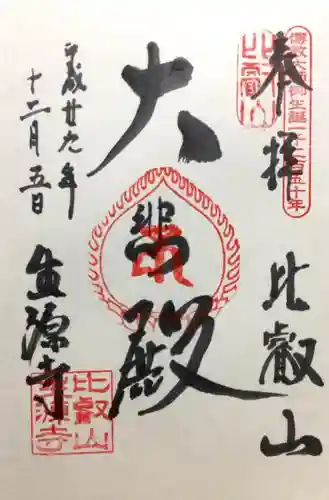 奉拝
比叡山
傳教大師御生誕一千二百五十年
比叡山
大悲殿
平成廿九年
十二月五日
生源寺
比叡山
生源寺